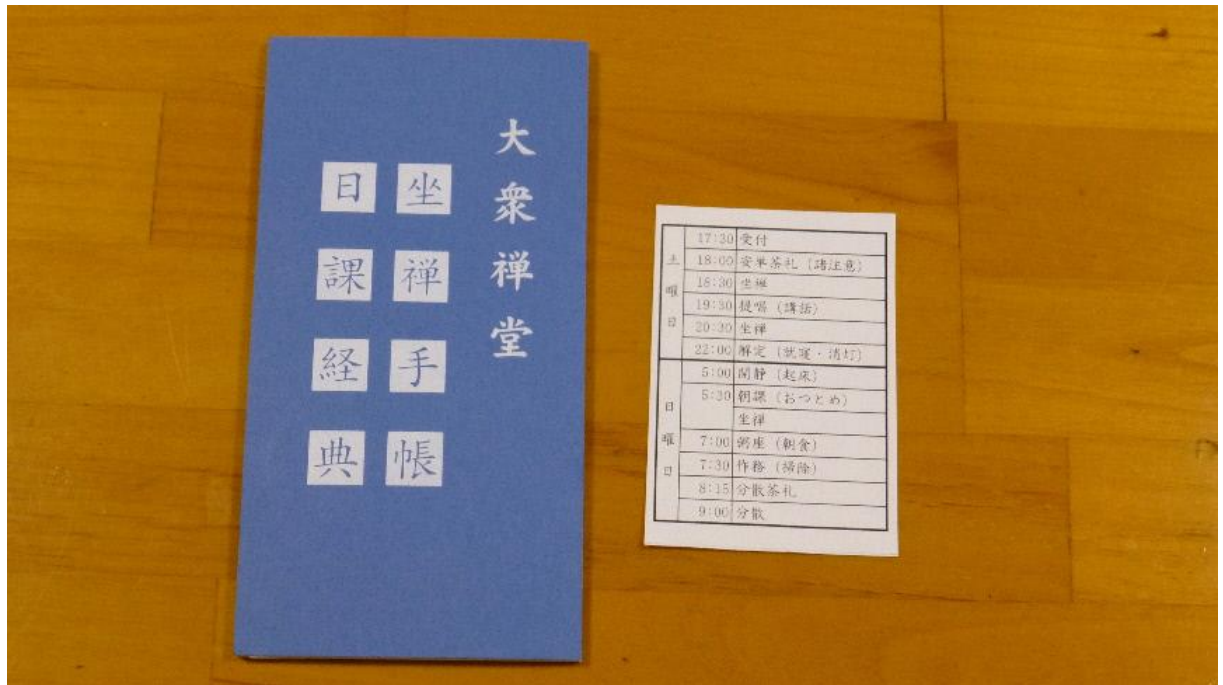 大衆禅堂
坐禅手帳
日課経典
土曜日
17:30 受付
18:00 安単茶礼（諸注意）
18:30 坐禅
19:30 提唱（講話）
20:30 坐禅
22:00 解定（就寝・消灯）
日曜日
5:00 開静（起床）
5:30 朝課（おつとめ）
坐禅
7:00 粥座（朝食）
7:30 作務（掃除）
8:15 分散茶礼
9:00 分散